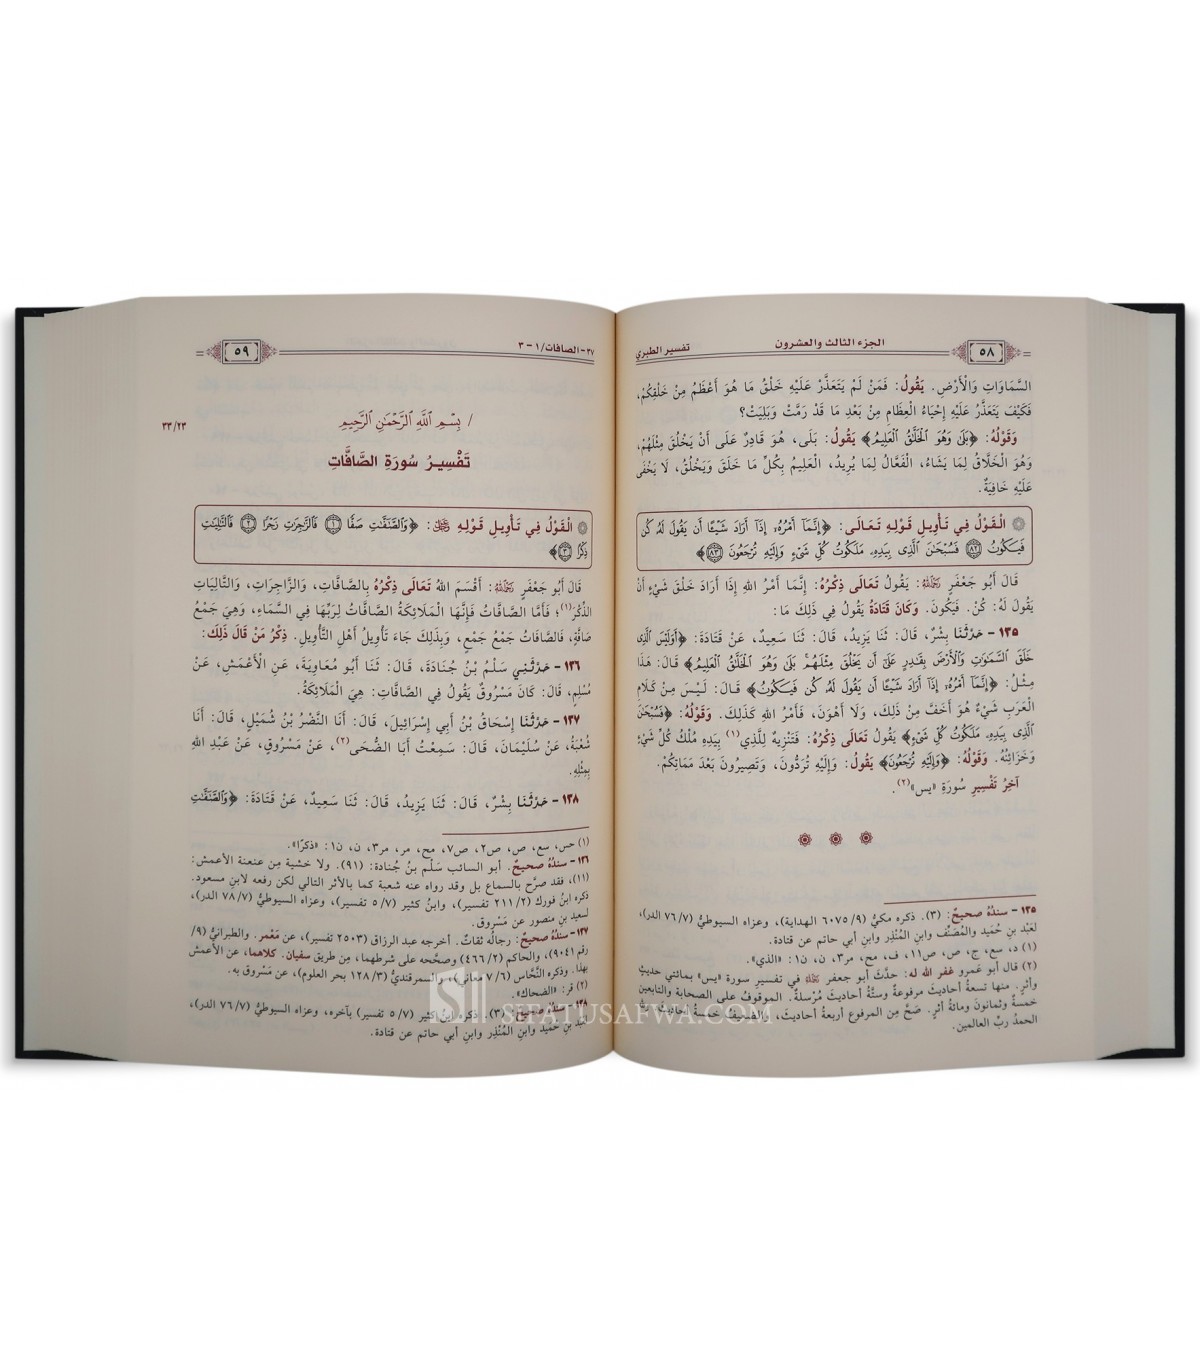 ٥٨
الجزء الثالث والعشرون
تفسير الطبري
السَّمَاوَاتِ وَالْأَرْضِ. يَقُولُ: فَمَنْ لَمْ يَتَعَذَّرْ عَلَيْهِ خَلْقُ مَا هُوَ أَعْظَمُ مِنْ خَلْقِكُمْ،
فَكَيْفَ يَتَعَذَّرُ عَلَيْهِ إِحْيَاءُ الْعِظَامِ مِنْ بَعْدِ مَا قَدْ رَمَّتْ وَبَلِيَتْ؟
وَقَوْلُهُ: ﴿بَلَىٰ وَهُوَ ٱلْخَلَّٰقُ ٱلْعَلِيمُ﴾ يَقُولُ: بَلَى، هُوَ قَادِرٌ عَلَى أَنْ يَخْلُقَ مِثْلَهُمْ،
وَهُوَ الْخَلَّاقُ لِمَا يَشَاءُ، الْفَعَّالُ لِمَا يُرِيدُ، الْعَلِيمُ بِكُلِّ مَا خَلَقَ وَيَخْلُقُ، لَا يَخْفَى
عَلَيْهِ خَافِيَةٌ.
الْقَوْلُ فِي تَأْوِيلِ قَوْلِهِ تَعَالَى: ﴿إِنَّمَآ أَمْرُهُۥٓ إِذَآ أَرَادَ شَيْـًٔا أَن يَقُولَ لَهُۥ كُن
فَيَكُونُ ٨٢ فَسُبْحَٰنَ ٱلَّذِى بِيَدِهِۦ مَلَكُوتُ كُلِّ شَىْءٍ وَإِلَيْهِ تُرْجَعُونَ ٨٣﴾
قَالَ أَبُو جَعْفَرٍ رَحِمَهُ اللَّهُ: يَقُولُ تَعَالَى ذِكْرُهُ: إِنَّمَا أَمْرُ اللهِ إِذَا أَرَادَ خَلْقَ شَيْءٍ أَنْ
يَقُولَ لَهُ: كُنْ. فَيَكُونُ. وَكَانَ قَتَادَةُ يَقُولُ فِي ذَلِكَ مَا:
١٣٥ - حَدَّثَنَا بِشْرٌ، قَالَ: ثَنَا يَزِيدُ، قَالَ: ثَنَا سَعِيدٌ، عَنْ قَتَادَةَ: ﴿أَوَلَيْسَ ٱلَّذِى
خَلَقَ ٱلسَّمَٰوَٰتِ وَٱلْأَرْضَ بِقَٰدِرٍ عَلَىٰٓ أَن يَخْلُقَ مِثْلَهُمْ بَلَىٰ وَهُوَ ٱلْخَلَّٰقُ ٱلْعَلِيمُ﴾ قَالَ: هَذَا
مِثْلُ: ﴿إِنَّمَآ أَمْرُهُۥٓ إِذَآ أَرَادَ شَيْـًٔا أَن يَقُولَ لَهُۥ كُن فَيَكُونُ﴾ قَالَ: لَيْسَ مِنْ كَلَامِ
الْعَرَبِ شَيْءٌ هُوَ أَخَفَّ مِنْ ذَلِكَ، وَلَا أَهْوَنَ، فَأَمْرُ اللهِ كَذَلِكَ. وَقَوْلُهُ: ﴿فَسُبْحَٰنَ
ٱلَّذِى بِيَدِهِۦ مَلَكُوتُ كُلِّ شَىْءٍ﴾ يَقُولُ تَعَالَى ذِكْرُهُ: فَتَنْزِيهُ لِلَّذِي(١) بِيَدِهِ مُلْكُ كُلِّ شَيْءٍ
وَخَزَائِنُهُ. وَقَوْلُهُ: ﴿وَإِلَيْهِ تُرْجَعُونَ﴾ يَقُولُ: وَإِلَيْهِ تُرَدُّونَ، وَتَصِيرُونَ بَعْدَ مَمَاتِكُمْ.
آخِرُ تَفْسِيرِ سُورَةِ «يس»(٢).
١٣٥ - سندُهُ صحيحٌ: (٣). ذكره مكيٌّ (٩/ ٦٠٧٥ الهداية)، وعزاه السيوطيُّ (٧/ ٧٦ الدر)،
لعَبْدِ بنِ حُمَيد والمُصَنِّف وابنِ المُنْذِر وابنِ أبي حاتم عن قتادة.
(١) د، سع، ج، ص، ص١١، ف، مح، مر٣، ن، ن١: «الذي».
(٢) قال أبو عَمرو غفر الله له: حدَّث أبو جعفر في تفسيرِ سورة «يس» بمائتي حديثٍ
وأثرٍ. منها تسعةُ أحاديثَ مرفوعة وستُّة أحاديثَ مُرْسلة. الموقوفُ على الصحابة والتابعين
خمسةٌ وثمانونَ ومائةُ أثرٍ. صَحَّ مِن المرفوع أربعةُ أحاديثَ، والضعيفُ خمسةُ أحاديثَ
الحمدُ ربِّ العالمين.
٣٧-الصافات/١ - ٣
٥٩
٣٣/٢٣
/ بِسْمِ اللَّهِ الرَّحْمَٰنِ الرَّحِيمِ
تَفْسِيرُ سُورَةِ الصَّافَّاتِ
الْقَوْلُ فِي تَأْوِيلِ قَوْلِهِ: ﴿وَٱلصَّٰٓفَّٰتِ صَفًّا ١ فَٱلزَّٰجِرَٰتِ زَجْرًا ٢ فَٱلتَّٰلِيَٰتِ
ذِكْرًا ٣﴾
قَالَ أَبُو جَعْفَرٍ رَحِمَهُ اللَّهُ: أَقْسَمَ اللهُ تَعَالَى ذِكْرُهُ بِالصَّافَّاتِ، وَالزَّاجِرَاتِ، وَالتَّالِيَاتِ
الذِّكْرَ(١)؛ فَأَمَّا الصَّافَّاتُ فَإِنَّهَا الْمَلَائِكَةُ الصَّافَّاتُ لِرَبِّهَا فِي السَّمَاءِ، وَهِيَ جَمْعُ
صَافَّةٍ، فَالصَّافَّاتُ جَمْعُ جَمْعٍ، وَبِذَلِكَ جَاءَ تَأْوِيلُ أَهْلِ التَّأْوِيلِ. ذِكْرُ مَنْ قَالَ ذَلِكَ:
١٣٦ - حَدَّثَنِي سَلْمُ بْنُ جُنَادَةَ، قَالَ: ثَنَا أَبُو مُعَاوِيَةَ، عَنِ الْأَعْمَشِ، عَنْ
مُسْلِمٍ، قَالَ: كَانَ مَسْرُوقٌ يَقُولُ فِي الصَّافَّاتِ: هِيَ الْمَلَائِكَةُ.
١٣٧ - حَدَّثَنَا إِسْحَاقُ بْنُ أَبِي إِسْرَائِيلَ، قَالَ: أَنَا النَّضْرُ بْنُ شُمَيْلٍ، قَالَ: أَنَا
شُعْبَةُ، عَنْ سُلَيْمَانَ، قَالَ: سَمِعْتُ أَبَا الضُّحَى(٢)، عَنْ مَسْرُوقٍ، عَنْ عَبْدِ اللهِ
بِمِثْلِهِ.
١٣٨ - حَدَّثَنَا بِشْرٌ، قَالَ: ثَنَا يَزِيدُ، قَالَ: ثَنَا سَعِيدٌ، عَنْ قَتَادَةَ: ﴿وَٱلصَّٰٓفَّٰتِ
(١) حس، سع، ص، ص٢، ص٧، مح، مر، مر٣، ن، ن١: «ذكرًا».
١٣٦ - سندُهُ صحيحٌ. أبو السائب سَلْم بنُ جُنادة: (٩١). ولا خشية مِن عنعنة الأعمش:
(١١)، فقد صرَّح بالسماع بل وقد رواه عنه شعبة كما بالأثر التالي لكن رفعه لابنِ مسعود.
ذكره ابنُ فورك (٢/ ٢١١ تفسير)، وابنُ كثير (٧/ ٥ تفسير)، وعزاه السيوطيُّ (٧/ ٧٨ الدر)،
لسعيد بنِ منصور عن مَسْروق.
١٣٧ - سندُهُ صحيحٌ: رجالُه ثقاتٌ. أخرجه عبد الرزاق (٢٥٠٣ تفسير)، عن مَعْمر. والطبرانيُّ (٩/
رقم ٩٠٤١)، والحاكم (٢/ ٤٦٦) وصحّحه على شرطهما، مِن طريق سفيان. كلاهما، عن الأعمش
بهذا. وذكره النَّحَّاس (٦/ ٧ معاني)، والسمرقنديُّ (٣/ ١٢٨ بحر العلوم)، عن مَسْروق به.
(٢) قر: «الضحاك».
١٣٨ - سندُهُ صحيحٌ: (٣). ذكره ابنُ كثير (٧/ ٥ تفسير) بآخره، وعزاه السيوطيُّ (٧/ ٧٦ الدر)،
لعبد بنِ حُمَيد وابنِ المُنْذِر وابنِ أبي حاتم عن قتادة.
SIFATUSAFWA.COM